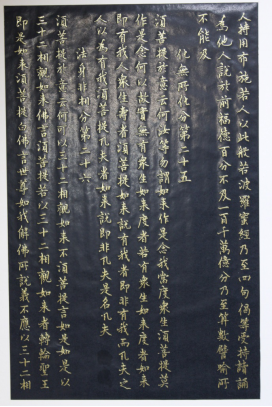 人持用布施若人以此般若波羅蜜經乃至四句偈等受持讀誦
為他人說於前福德百分不及一百千萬億分乃至算數譬喻所
不能及
化無所化分第二十五
須菩提於意云何汝等勿謂如來作是念我當度眾生須菩提莫
作是念何以故實無有眾生如來度者若有眾生如來度者如來
即有我人眾生壽者須菩提如來說有我者即非有我而凡夫之
人以為有我須菩提凡夫者如來說即非凡夫是名凡夫
法身非相分第二十六
須菩提於意云何可以三十二相觀如來不須菩提言如是如是以
三十二相觀如來佛言須菩提若以三十二相觀如來者轉輪聖王
即是如來須菩提白佛言世尊如我解佛所說義不應以三十二相